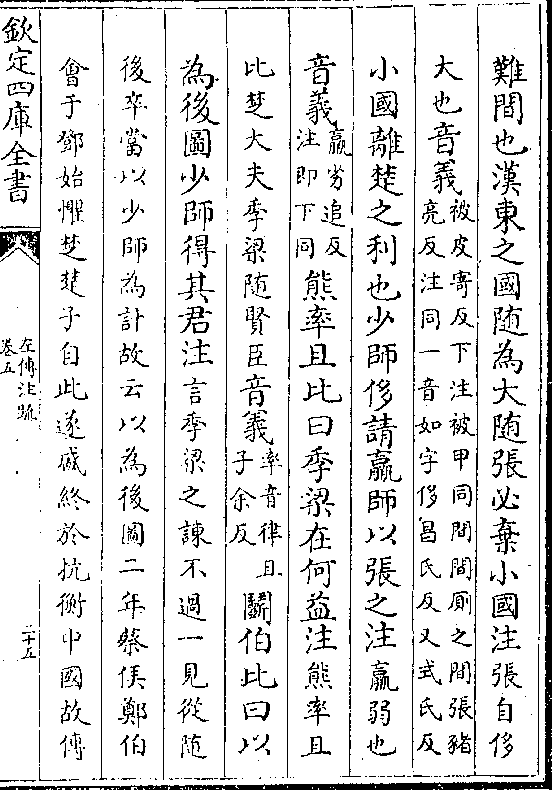 難間也漢東之國随為大随張必棄小國注張自侈
大也音義被皮寄反下注被甲同間間厠之間張豬
亮反注同一音如字侈昌氏反又式氏反
小國離楚之利也少師侈請羸師以張之注羸弱也
音義羸劣追反
注即下同熊率且比曰季梁在何益注熊率且
比楚大夫季梁随賢臣音義率音律且
子余反鬬伯比曰以
為後圖少師得其君注言季梁之諫不過一見從随
後卒當以少師為計故云以為後圖二年蔡侯鄭伯
會于鄧始懼楚楚子自此遂盛終於抗衡中國故傳
欽定四庫全書
左傳注疏
卷五
二十五